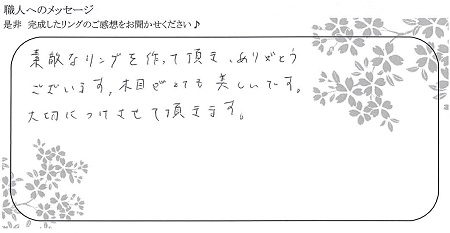 職人へのメッセージ
是非 完成したリングのご感想をお聞かせください♪
素敵なリングを作って頂き、ありがとう
ございます。木目がとても美しいです。
大切につけさせて頂きます。